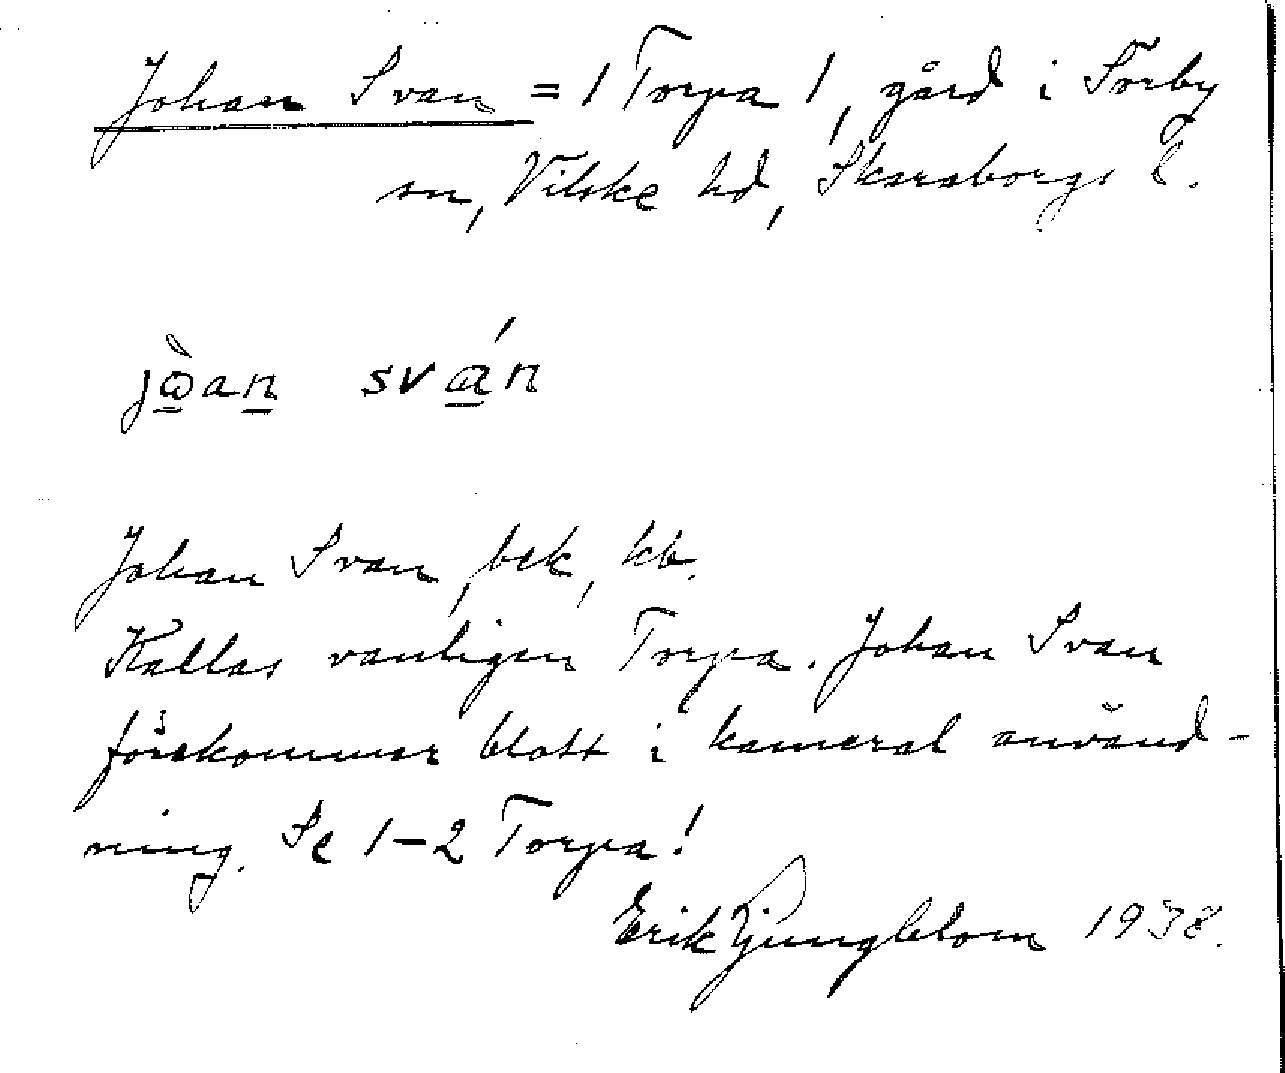 Johan Svan = 1 Torpa 1, gård i Sörby
sn, Vilske hd, Skaraborgs l.
jòan sván
Johan Svan, bek, kb.
Kallas vanligen Torpa. Johan Svan
förekommer blott i kameral använd-
ning. Se 1-2 Torpa!
Erik Ljungblom 1938.